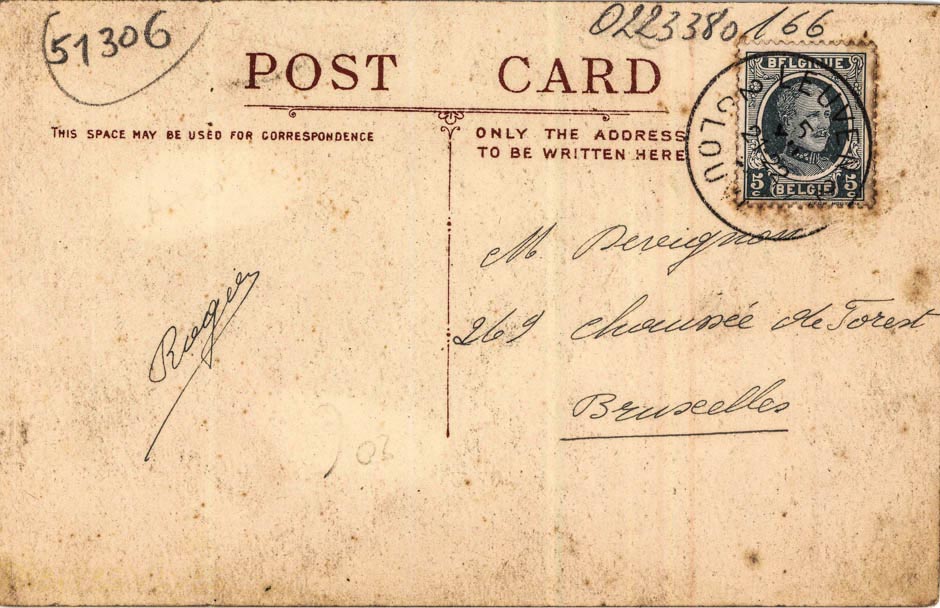 51306
0223380166
POST CARD
THIS SPACE MAY BE USED FOR CORRESPONDENCE
ONLY THE ADDRESS
TO BE WRITTEN HERE
BELGIQUE
5c 5c
BELGIË
LEUVEN
M. Devignon
269 chaussée de Forest
Bruxelles
Roger
03